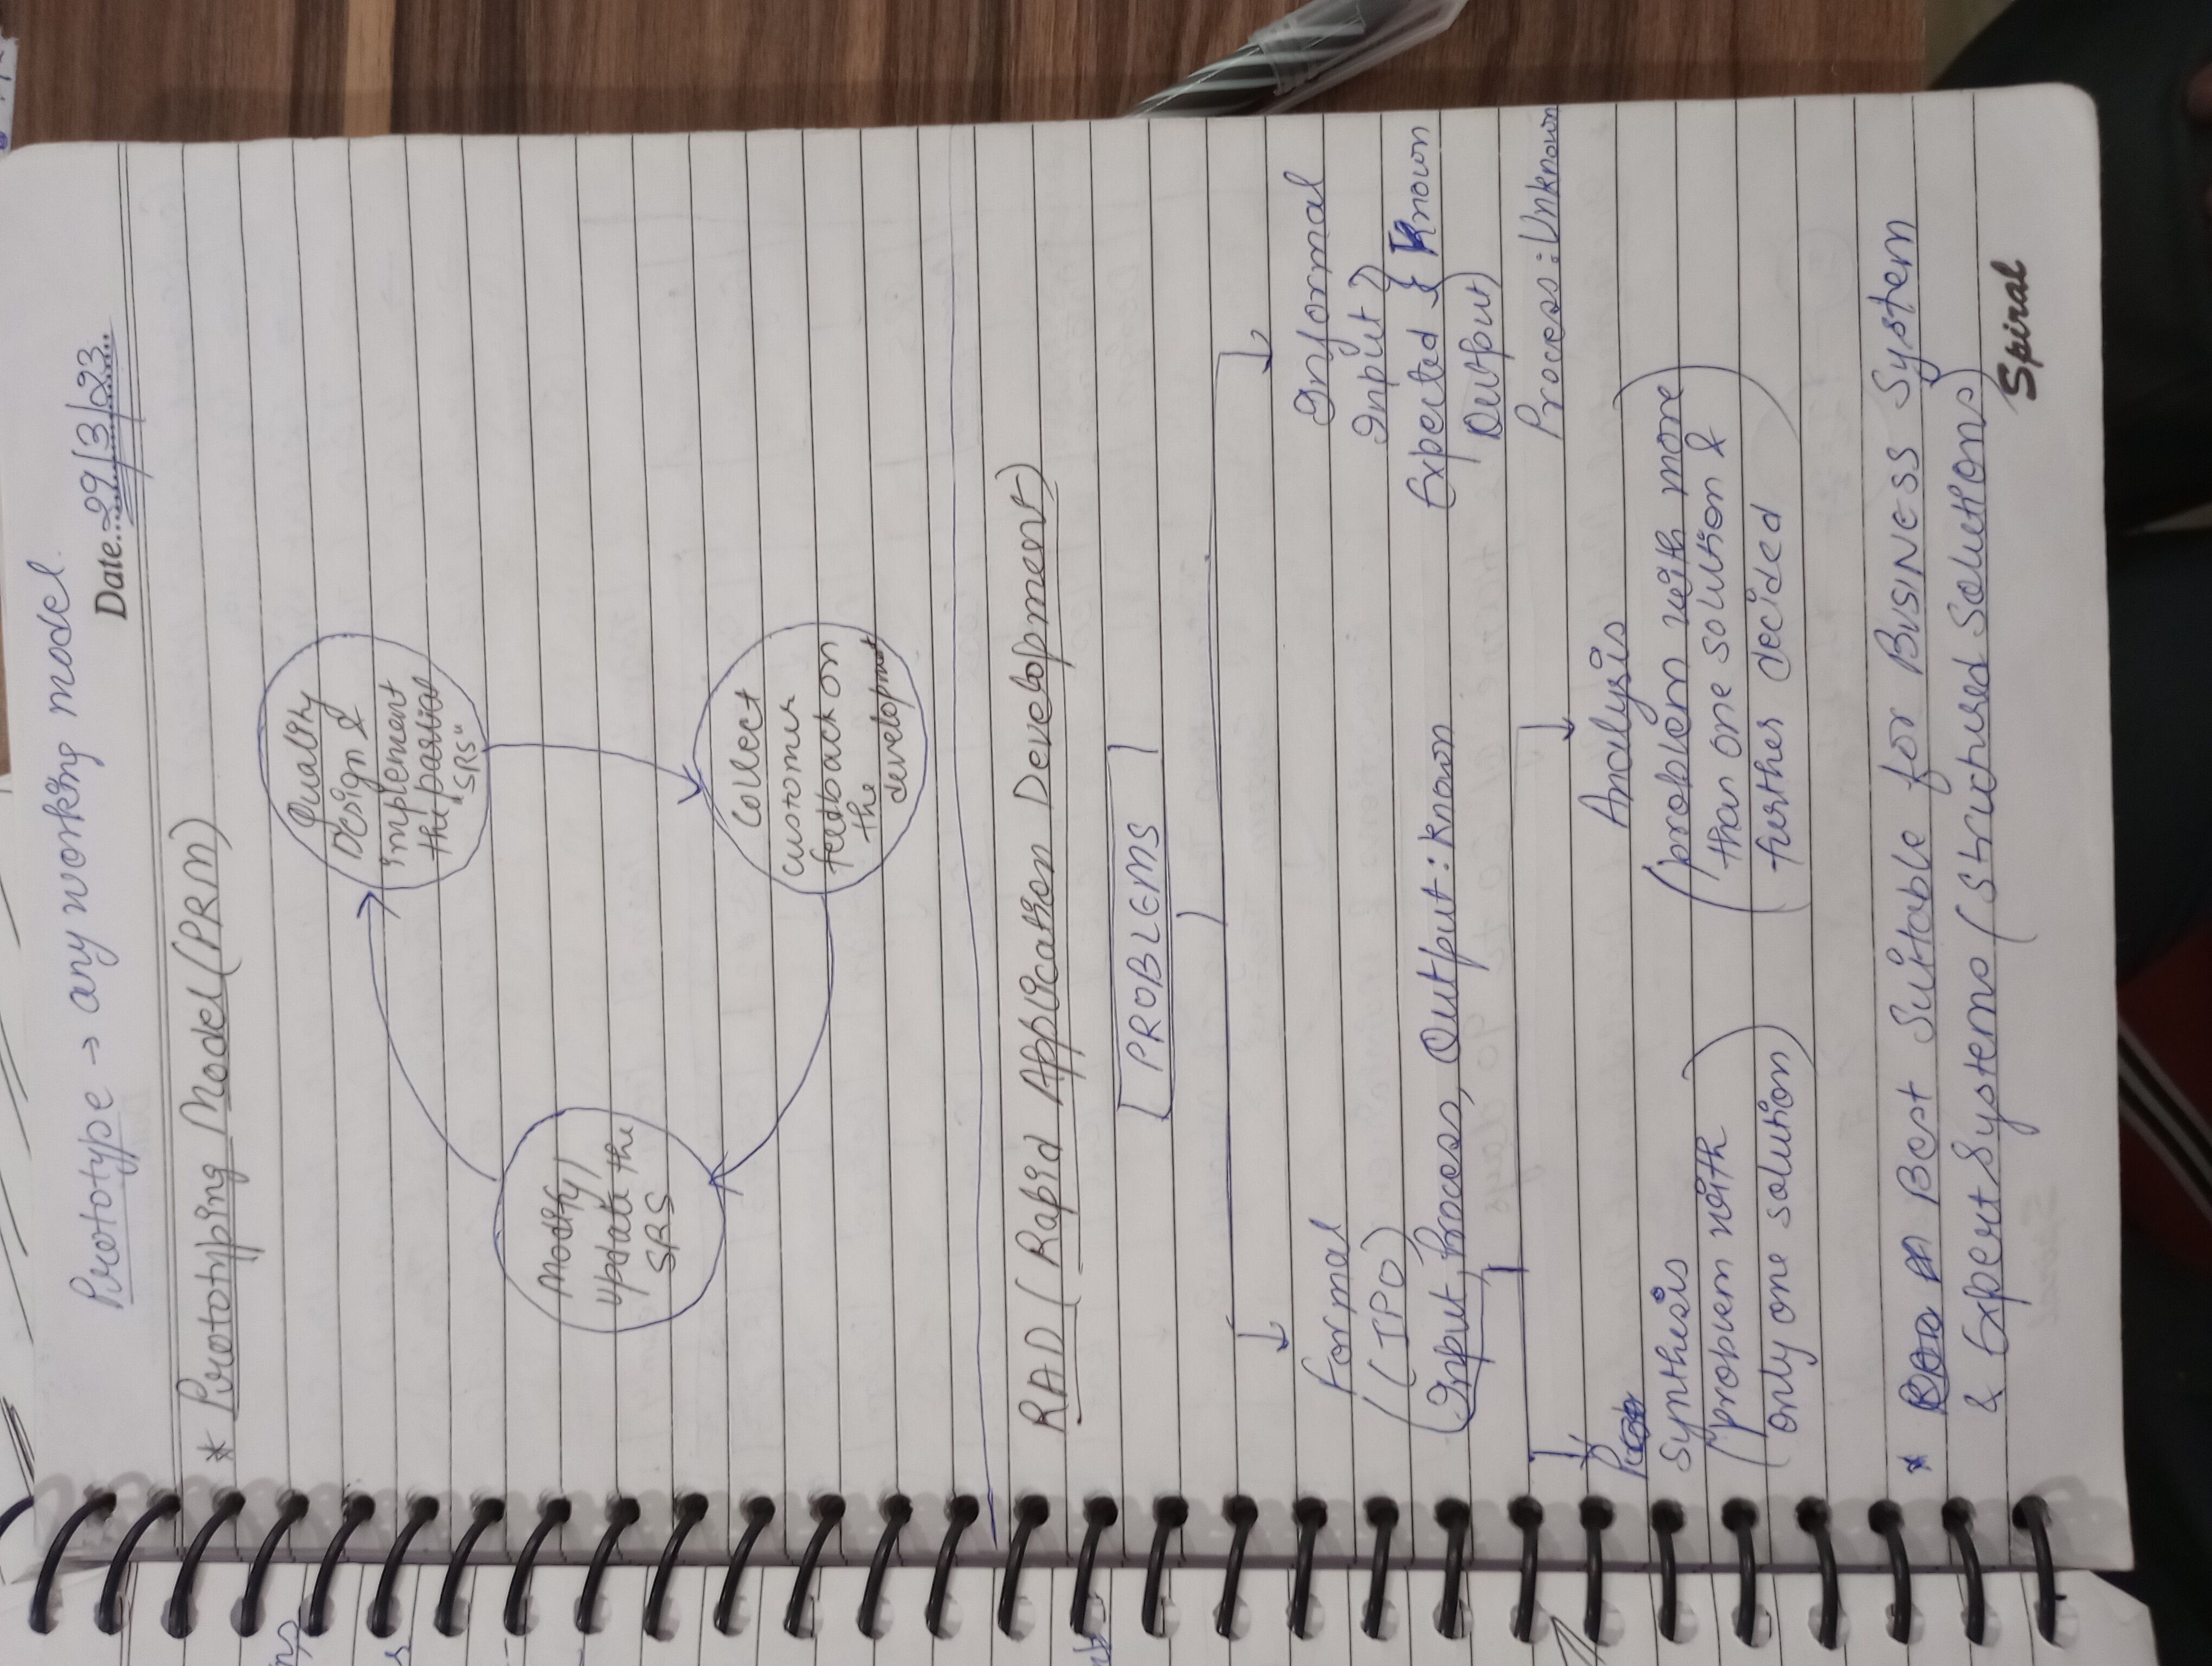 Prototype → any working model.
Date 29/3/23
* Prototyping Model (PRM)
Quality
Design &
implement
the partial
"SRS"
Modify/
update the
SRS
Collect
customer
feedback on
the
development
RAD (Rapid Application Development)
PROBLEMS
Formal
Informal
(IPO)
Input }
(Input, Process, Output : known
Expected } Known
Output
Process : Unknown
Synthesis
Analysis
(problem with
only one solution)
(problem with more
than one solution &
further decided
* Best Suitable for BUSINESS System
& Expert Systems (Structured Solutions)
Spiral